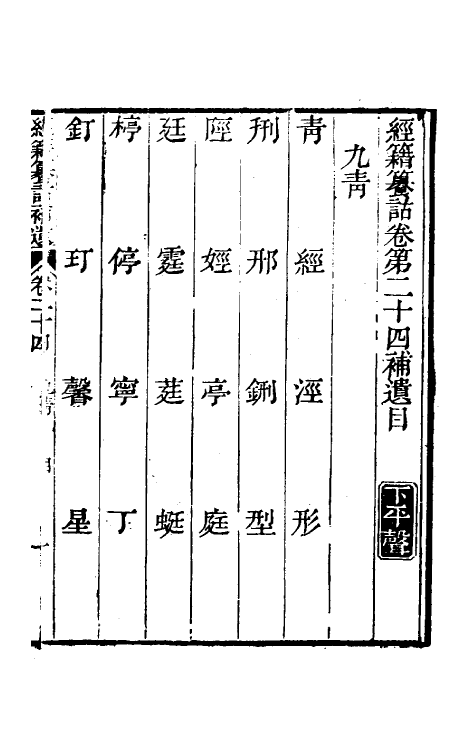 經籍籑詁卷第二十四補遺目
下平聲
九青
青經涇形
刑邢鉶型
陘娙亭庭
廷霆莛蜓
楟停寧丁
釘玎馨星
經籍籑詁補遺 卷二十四